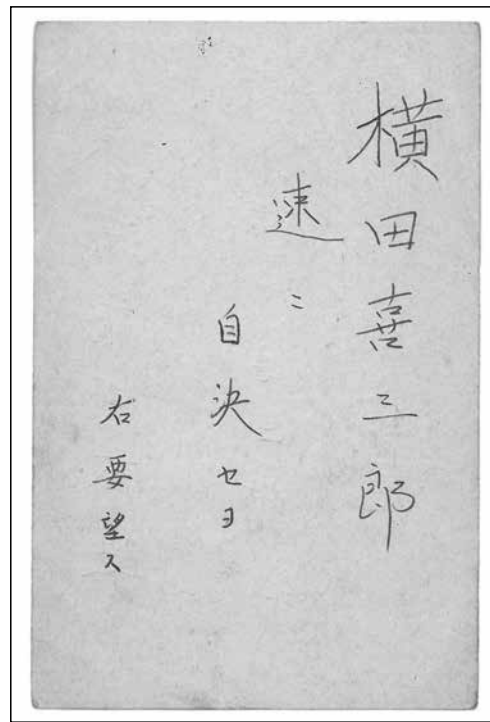 横田喜三郎
速ニ
自決セヨ
右要望ス